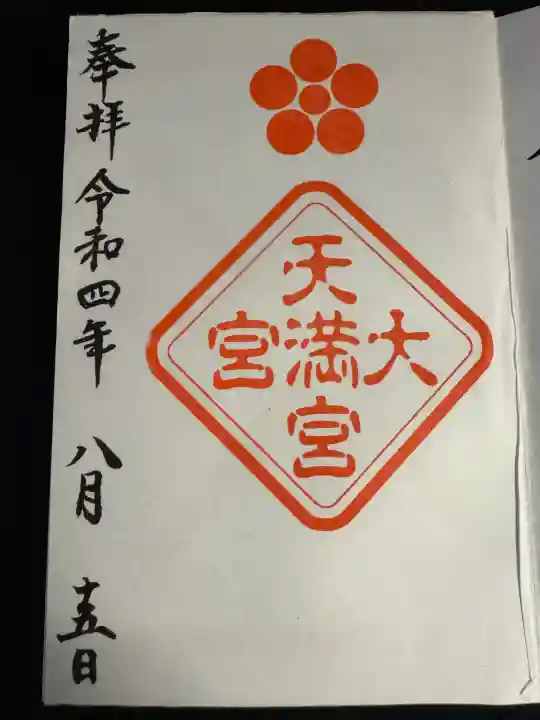 大
天満宮
宮
奉拝 令和四年 八月 十五日